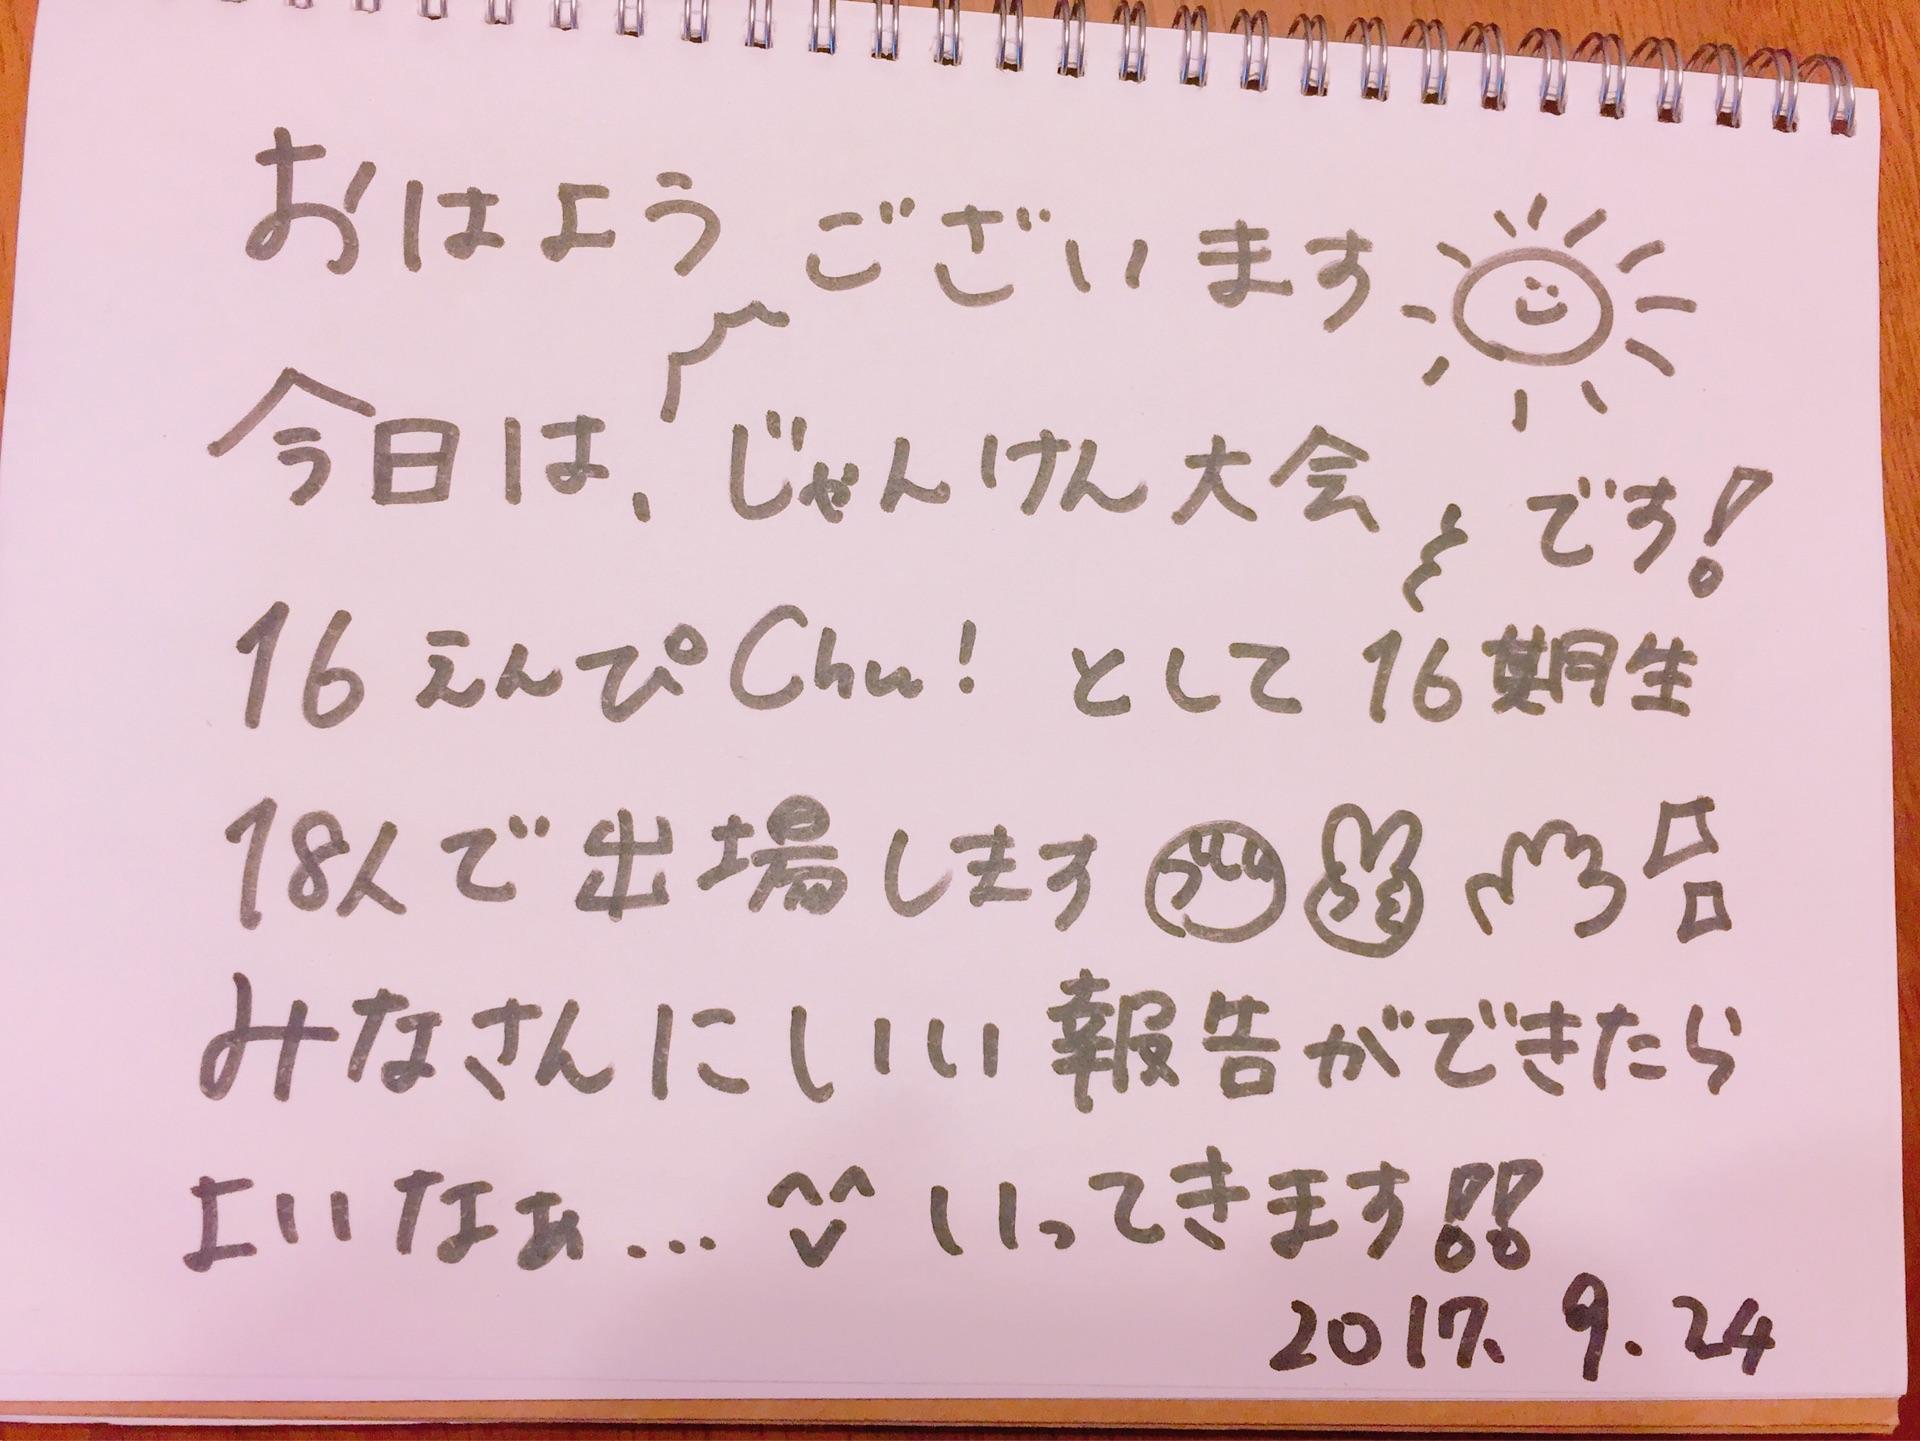 おはようございます
今日は、「じゃんけん大会」です!
16えんぴChu!として16期生
18人で出場します
みなさんにいい報告ができたら
よいなぁ... いってきます!!
2017. 9. 24